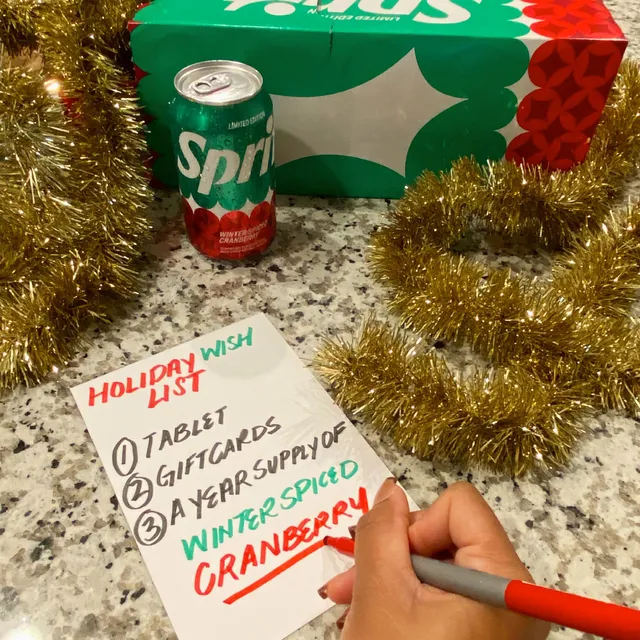 Sprit
LIMITED EDITION
LIMITED EDITION
Spri
WINTER SPICED
CRANBERRY
HOLIDAY WISH
LIST
① TABLET
② GIFTCARDS
③ A YEAR SUPPLY OF
WINTER SPICED
CRANBERRY